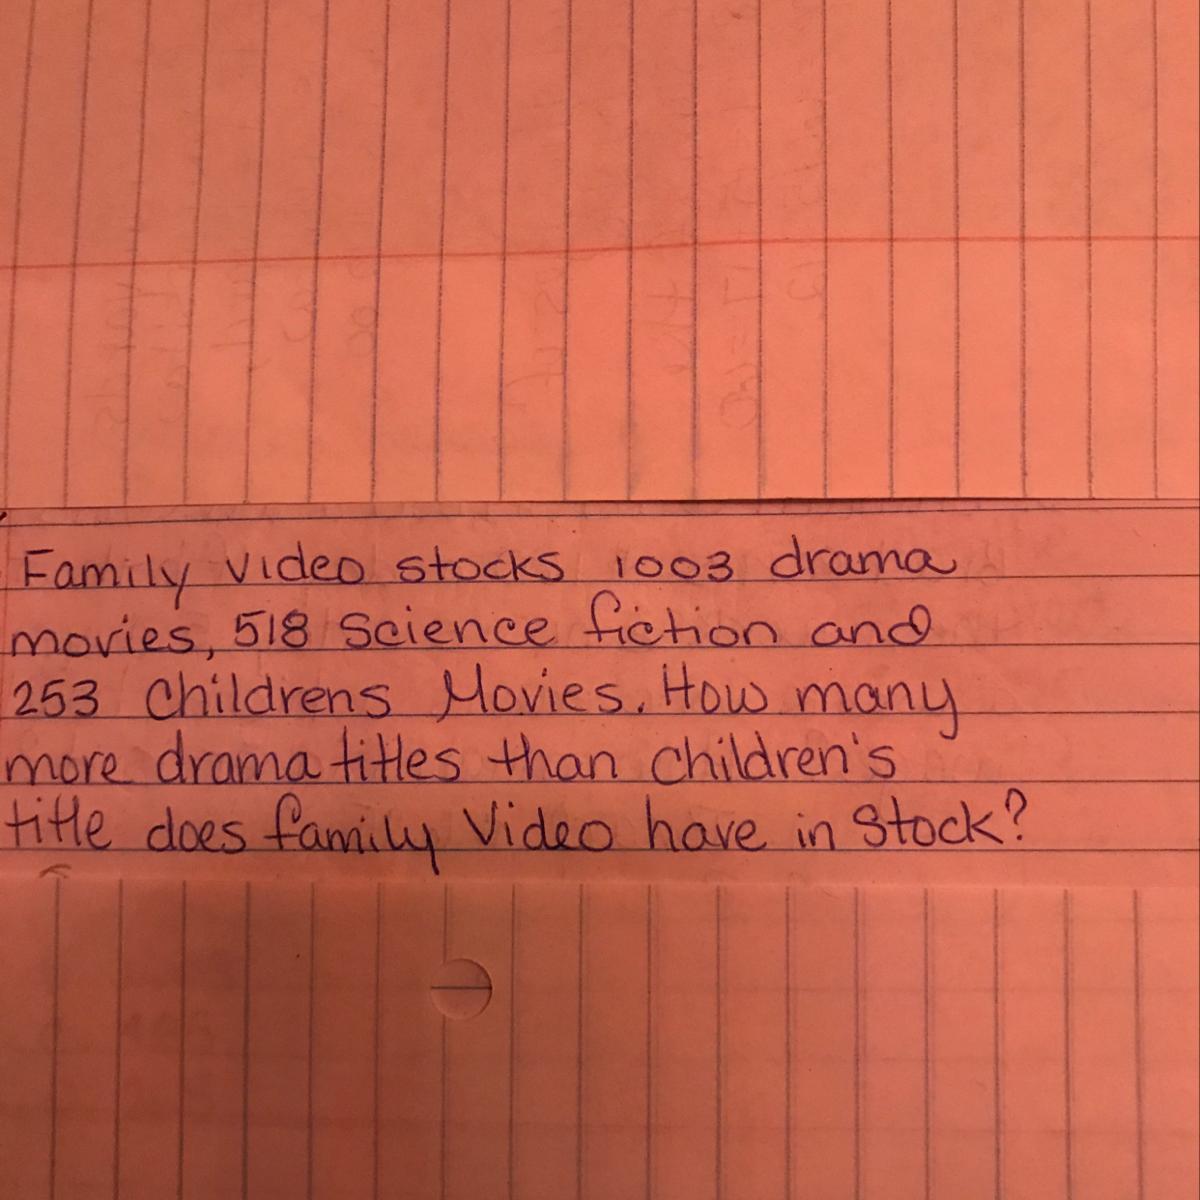 Family video stocks 1003 drama
movies, 518 Science fiction and
253 Childrens Movies. How many
more drama titles than children's
title does family Video have in Stock?